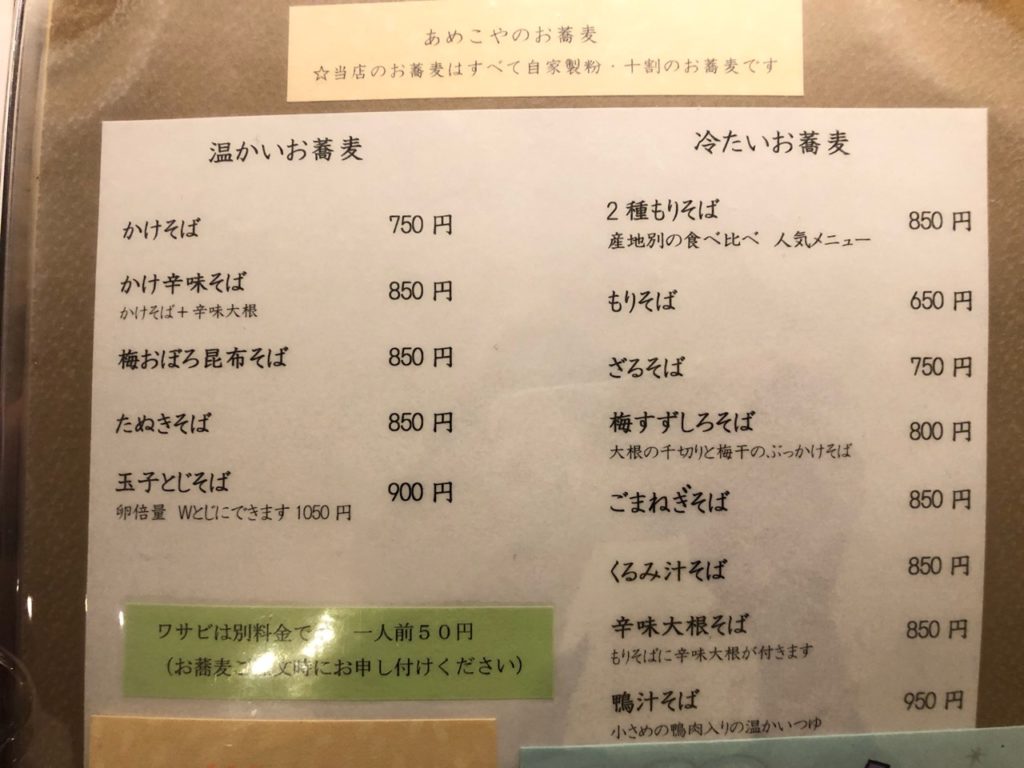 あめこやのお蕎麦
☆当店のお蕎麦はすべて自家製粉・十割のお蕎麦です
温かいお蕎麦
かけそば 750 円
かけ辛味そば 850 円
かけそば+辛味大根
梅おぼろ昆布そば 850 円
たぬきそば 850 円
玉子とじそば 900 円
卵倍量 Wとじにできます 1050 円
ワサビは別料金で 一人前50円
(お蕎麦ご 文時にお申し付けください)
冷たいお蕎麦
2 種もりそば 850 円
産地別の食べ比べ 人気メニュー
もりそば 650 円
ざるそば 750 円
梅すずしろそば 800 円
大根の千切りと梅干のぶっかけそば
ごまねぎそば 850 円
くるみ汁そば 850 円
辛味大根そば 850 円
もりそばに辛味大根が付きます
鴨汁そば 950 円
小さめの鴨肉入りの温かいつゆ